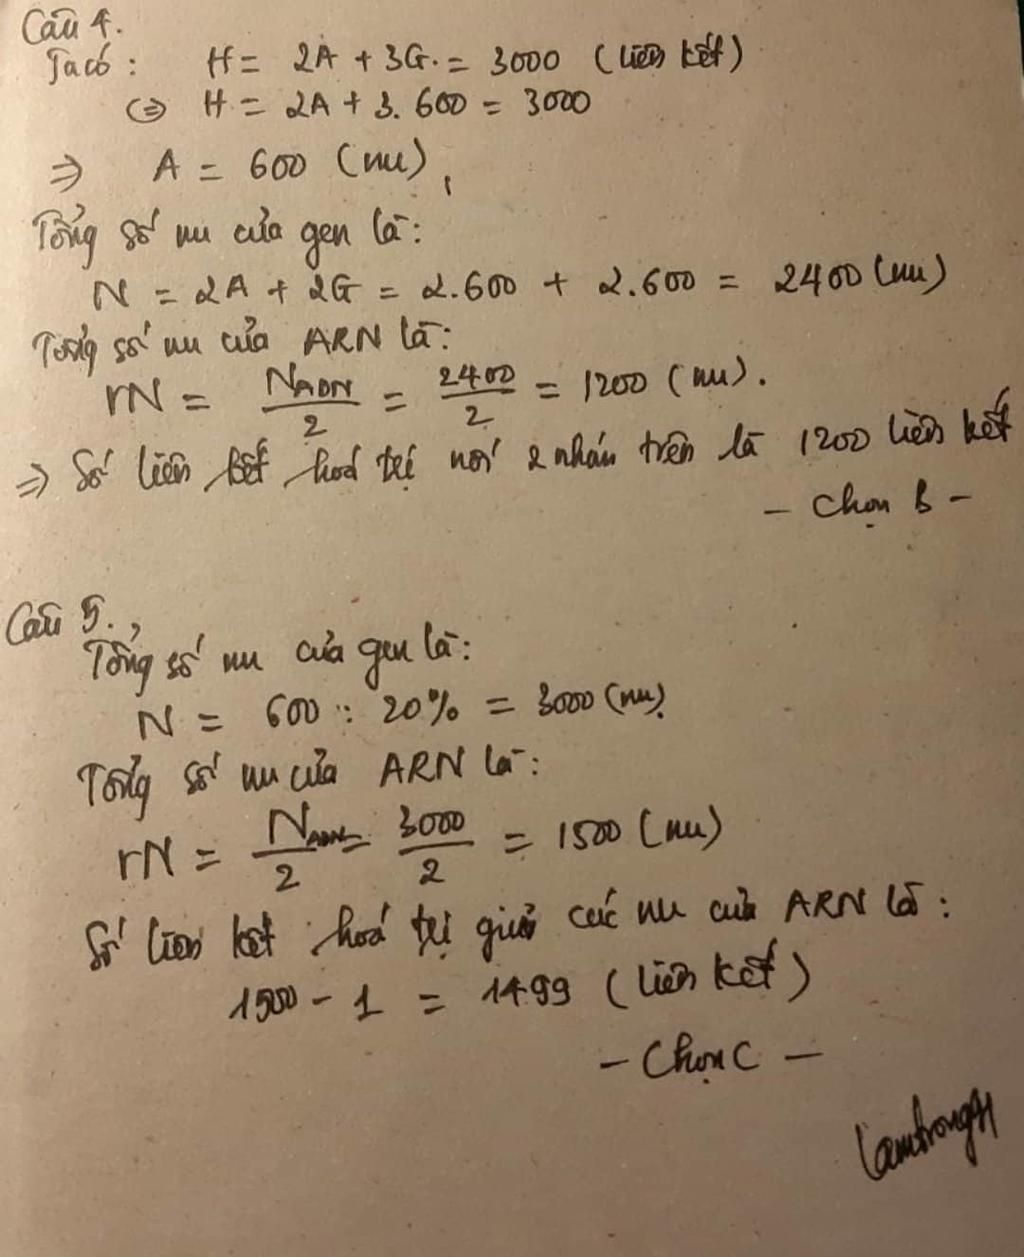 Câu 4.
Ta có : H = 2A + 3G = 3000 (liên kết)
⇔ H = 2A + 3. 600 = 3000
⇒ A = 600 (nu),
Tổng số nu của gen là:
N = 2A + 2G = 2.600 + 2.600 = 2400 (nu)
Tổng số nu của ARN là:
rN = N_ADN/2 = 2400/2 = 1200 (nu).
⇒ Số liên kết hoá trị nối trên là 1200 liên kết
- Chọn B -
Câu 5.,
Tổng số nu của gen là:
N = 600 : 20% = 3000 (nu).
Tổng số nu của ARN là:
rN = N_ADN/2 = 3000/2 = 1500 (nu)
Số liên kết hoá trị giữa các nu của ARN là:
1500 - 1 = 1499 (liên kết)
- Chọn C -